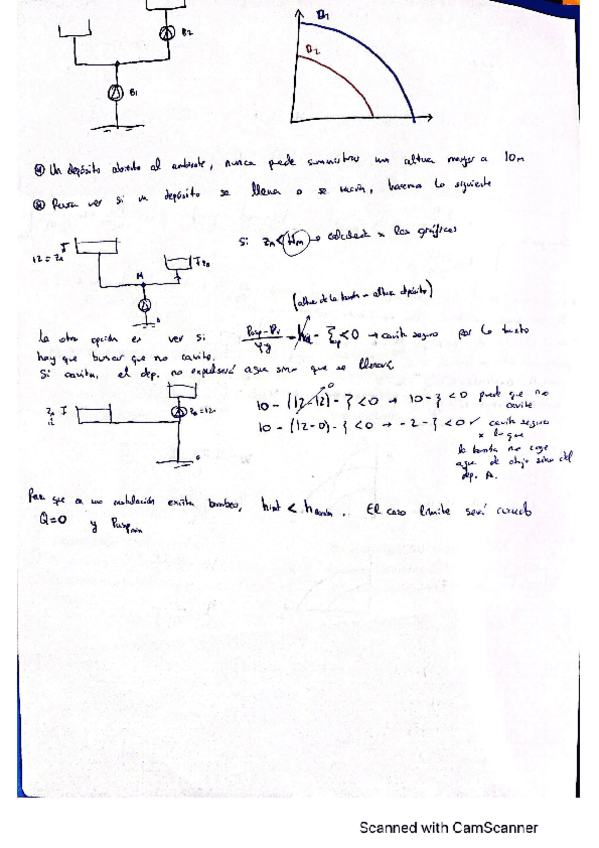 B2
B1
B1
B2
Un depósito abierto al ambiente, nunca puede suministrar una altura mayor a 10m
Para ver si un depósito se llena o se vacía, haremos lo siguiente
12 = ZA
ZB
M
Si ZA < HM → calculada x las gráficas
(altura de la bomba - altura depósito)
la otra opción es ver si
hay que buscar que no cavite.
< 0 → cavita seguro por lo tanto
Si cavita, el dep. no expulsará agua sino que se llenará
ZA
12
ZB = 12m
10 - (12-12) - ξ < 0 → 10 - ξ < 0 puede que no
cavite
10 - (12-0) - ξ < 0 → -2 - ξ < 0 ✓ cavita seguro
x lo que
la bomba no coge
agua de abajo sino del
dep. A.
Para que en una instalación exista bombeo, hinst < hbomba. El caso límite será cuando
Q=0 y
Scanned with CamScanner